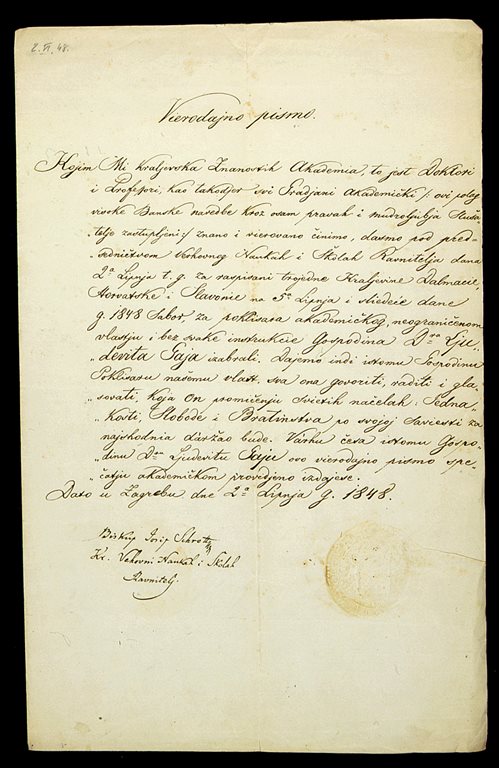 2. VI. 48.
Vierodajno pismo.
Kojim Mi Kraljevska Znanostih Akademia, to jest Doktori
i Profesori, kao takodjer svi Gradjani Akademički /: ovi poleg
visoke Banske naredbe kroz osam pravah i mudroljubja Sluša-
telje zastupljeni :/ znano i vierovano činimo, dasmo pod pred-
sedničtvom Verhovnog Naukah i Školah Ravnitelja dana
2a Lipnja t. g. za raspisani trojedne Kraljevine Dalmacie,
Horvatske i Slavonie na 5a Lipnja i sliedeće dane
g. 1848 Sabor za poklisara akademičkog, neograničenom
vlastju i bez svake instrukcie Gospodina Dra Lju„
„devita Gaja izabrali. Dajemo indi istomu Gospodinu
Poklisaru našemu vlast sva ona govoriti, raditi i gla„
„sovati, koja On promicanju Svetih načelah: Jedna„
„kosti Slobode i Bratinstva po svojoj Saviesti za
najshodnia daržao bude. Varhu česa istomu Gospo„
„dinu Dru Ljudevitu Gaju ovo vierodajno pismo spe„
„čatju akademičkom providjeno izdajese.
Dato u Zagrebu dne 2a Lipnja g. 1848.
Biskup Josip Schrott
Kr. Verhovni Naukah i Školah
Ravnitelj.